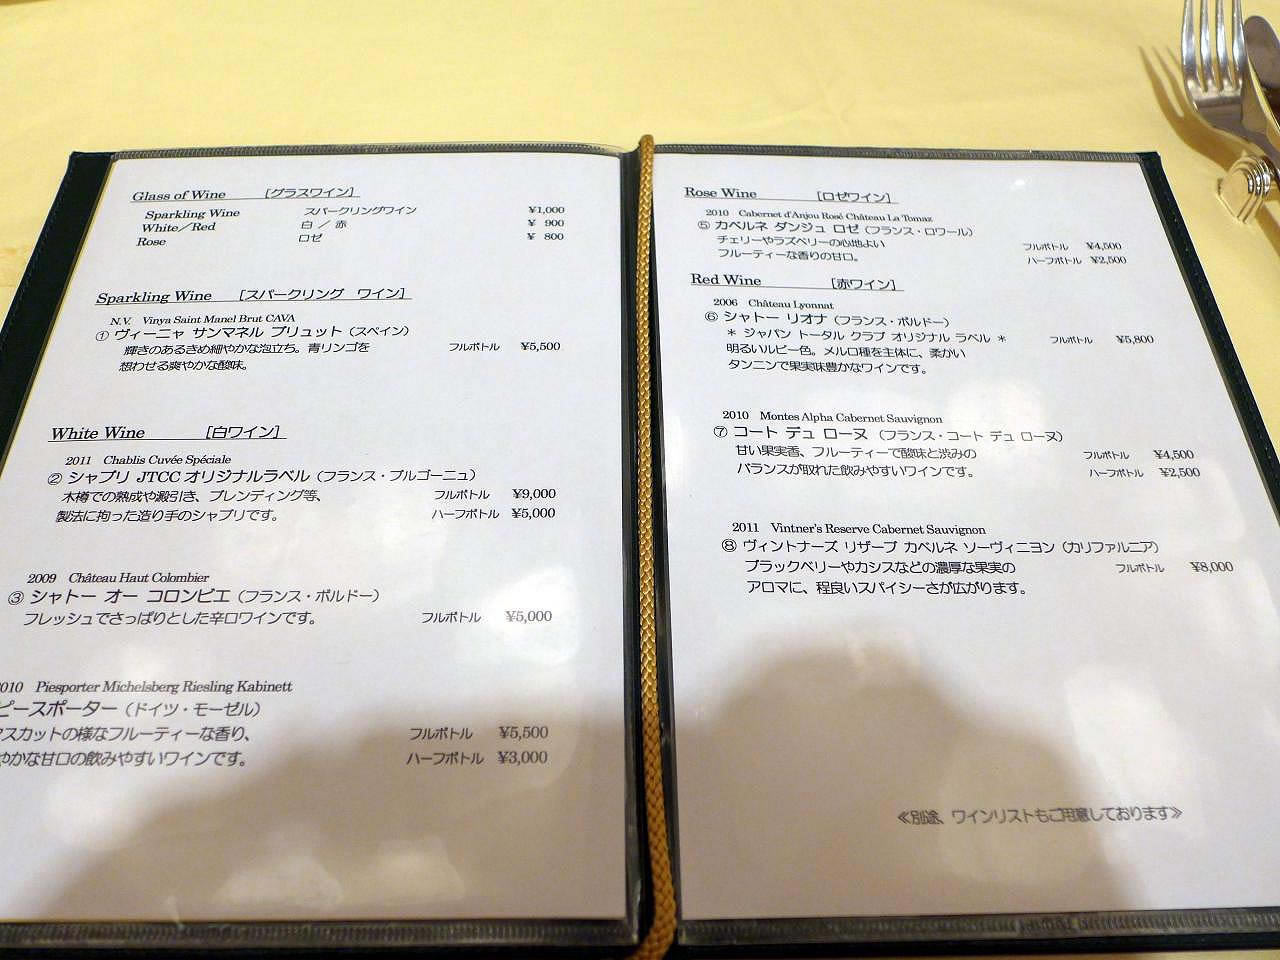 Glass of Wine [グラスワイン]
Sparkling Wine スパークリングワイン ¥1,000
White/Red 白 / 赤 ¥ 900
Rose ロゼ ¥ 800
Sparkling Wine [スパークリング ワイン]
N.V. Vinya Saint Manel Brut CAVA
① ヴィーニャ サンマネル ブリュット (スペイン)
輝きのあるきめ細やかな泡立ち。青リンゴを フルボトル ¥5,500
想わせる爽やかな酸味。
White Wine [白ワイン]
2011 Chablis Cuvée Spéciale
② シャブリ JTCC オリジナルラベル (フランス・ブルゴーニュ)
木樽での熟成や澱引き、ブレンディング等、 フルボトル ¥9,000
製法に拘った造り手のシャブリです。 ハーフボトル ¥5,000
2009 Château Haut Colombier
③ シャトー オー コロンビエ (フランス・ボルドー)
フレッシュでさっぱりとした辛口ワインです。 フルボトル ¥5,000
2010 Piesporter Michelsberg Riesling Kabinett
ピースポーター (ドイツ・モーゼル)
マスカットの様なフルーティーな香り、 フルボトル ¥5,500
やかな甘口の飲みやすいワインです。 ハーフボトル ¥3,000
Rose Wine [ロゼワイン]
2010 Cabernet d'Anjou Rosé Château La Tomaz
⑤ カベルネ ダンジュ ロゼ (フランス・ロワール)
チェリーやラズベリーの心地よい フルボトル ¥4,500
フルーティーな香りの甘口。 ハーフボトル ¥2,500
Red Wine [赤ワイン]
2006 Château Lyonnat
⑥ シャトー リオナ (フランス・ボルドー)
* ジャパン トータル クラブ オリジナル ラベル * フルボトル ¥5,800
明るいルビー色。メルロ種を主体に、柔かい
タンニンで果実味豊かなワインです。
2010 Montes Alpha Cabernet Sauvignon
⑦ コート デュ ローヌ (フランス・コート デュ ローヌ)
甘い果実香、フルーティーで酸味と渋みの フルボトル ¥4,500
バランスが取れた飲みやすいワインです。 ハーフボトル ¥2,500
2011 Vintner's Reserve Cabernet Sauvignon
⑧ ヴィントナーズ リザーブ カベルネ ソーヴィニヨン (カリファルニア)
ブラックベリーやカシスなどの濃厚な果実の フルボトル ¥8,000
アロマに、程良いスパイシーさが広がります。
≪別途、ワインリストもご用意しております≫